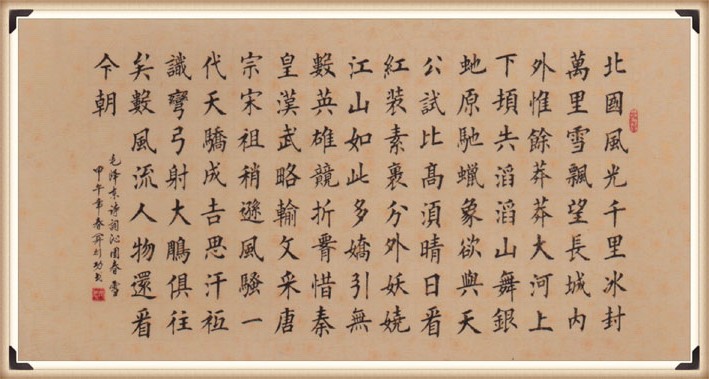 北國風光千里冰封
萬里雪飄望長城内
外惟餘莽莽大河上
下頓失滔滔山舞銀
虵原馳蠟象欲與天
公試比高須晴日看
紅装素裹分外妖嬈
江山如此多嬌引無
數英雄競折腰惜秦
皇漢武略輸文采唐
宗宋祖稍遜風騷一
代天驕成吉思汗祗
識彎弓射大鵰俱往
矣數風流人物還看
今朝
毛澤東詩詞沁園春雪
甲午年春